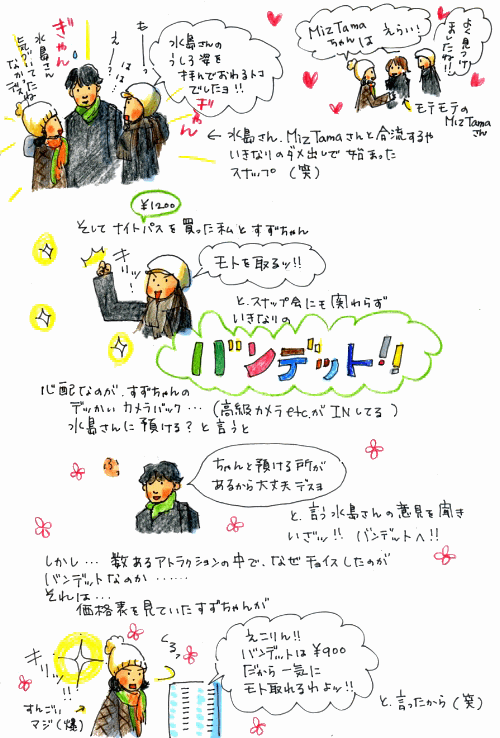 MizTama
ちゃんは えらい!
よく見つけ
ましたね!!
モテモテの
MizTama
さん
水島さん
気づいてたね
ぎゃん
え?
は?
も?
水島さんの
うしろ姿を
拝んでおわるトコ
でしたヨ!!
ぎゃん
← 水島さん、MizTamaさんと合流するや
いきなりのダメ出しで始まった
スナップ(笑)
¥1200
そして ナイトパスを買った私とすずちゃん
ギリッ!
モトを取るッ!!
と、スナップ会にも関わらず
いきなりの
バンデット!!
心配なのが、すずちゃんの
デッかい カメラバック…(高級カメラetc.が INしてる)
水島さんに預ける?と言うと
ちゃんと預ける所が
あるから大丈夫デスヨ
と、言う水島さんの意見を聞き
いざッ!! バンデットへ!!
しかし… 数あるアトラクションの中で、なぜチョイスしたのが
バンデットなのか……
それは…
価格表を見ていたすずちゃんが
キリッ!!
すんごい
マジ(爆)
えこりん!!
バンデットは ¥900
だから一気に
モト取れるわよッ!!
と、言ったから(笑)